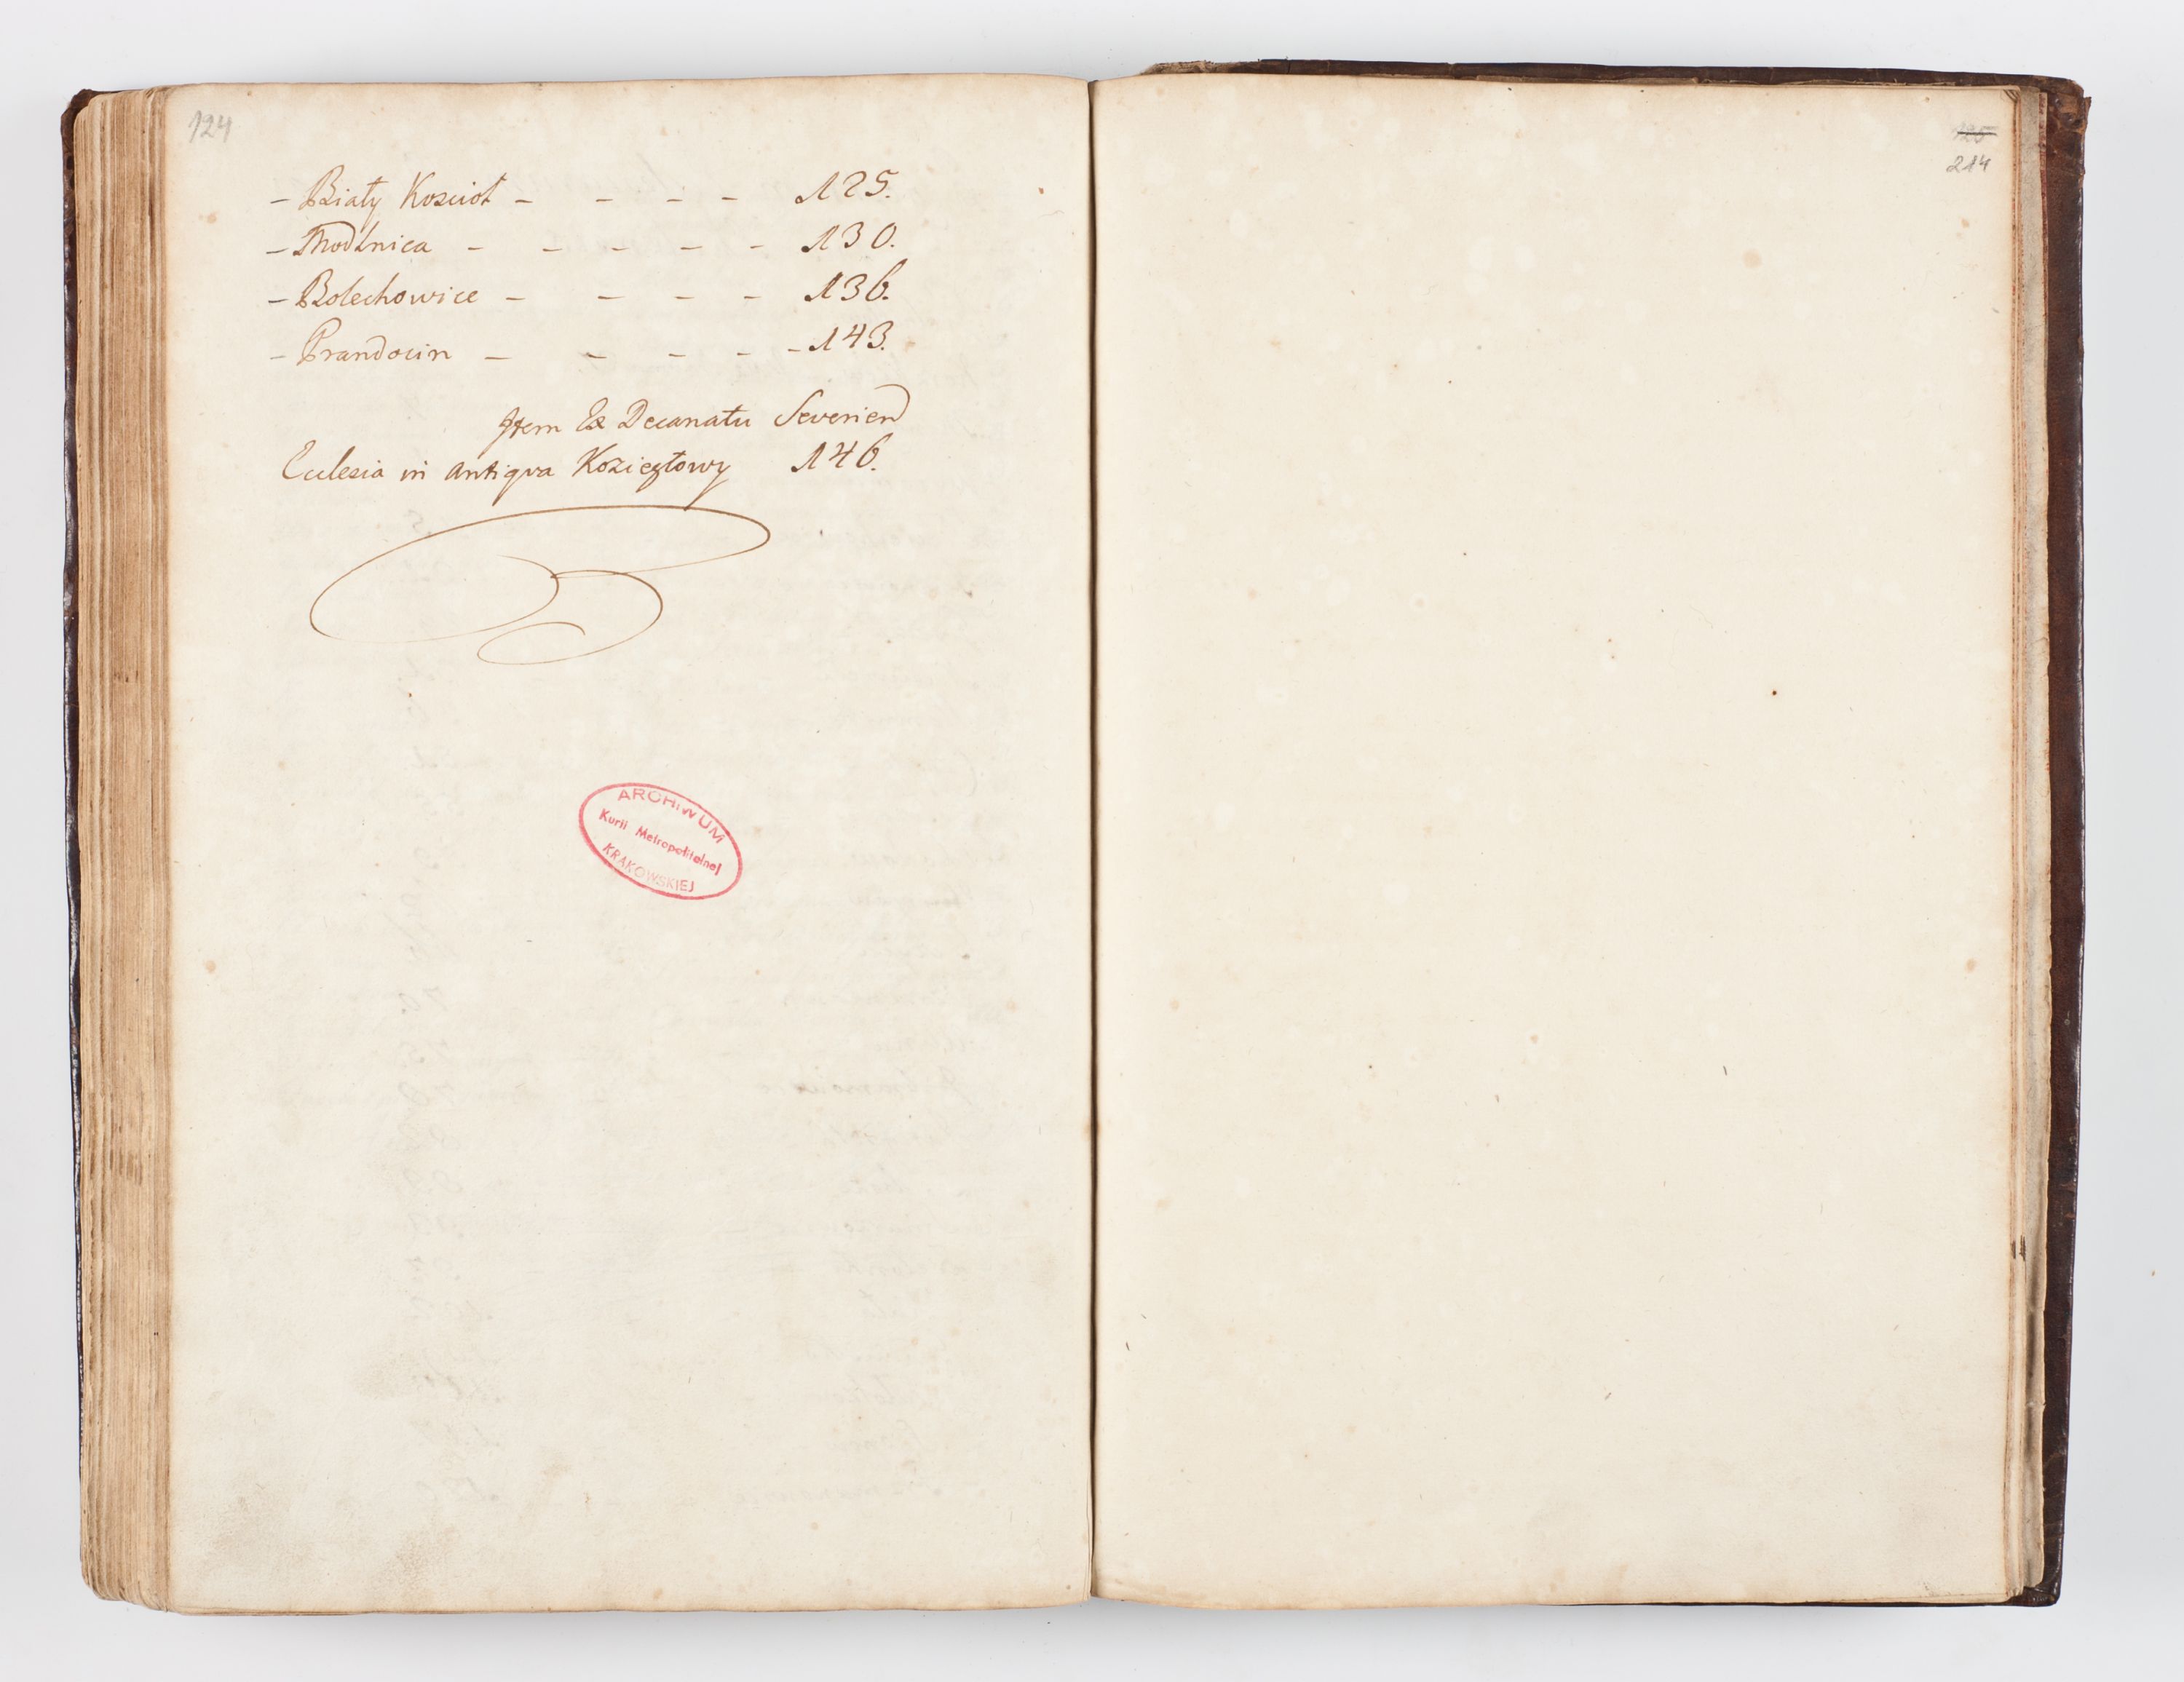 124
– Biały Koscioł – – – – 125.
– Modlnica – – – – – 130.
– Bolechowice – – – – 136.
– Prandocin – – – – – 143.
Item Ex Decanatu Severien
Ecclesia in Antiqva Koziegłowy 146.
ARCHIWUM
Kurii Metropolitalnej
KRAKOWSKIEJ
125
214